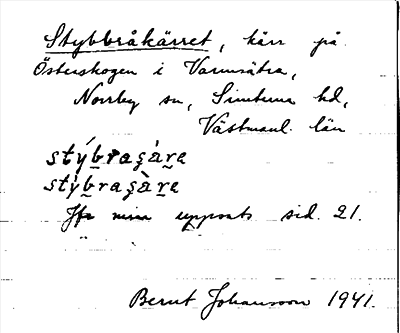 Stybbråkärret, kärr på
Österskogen i Varmsätra,
Norrby sn, Simtuna hd,
Västmanl. län
stýb̲raşàr̲a
stýb̲raşàr̲a
Jfr min uppsats sid. 21.
Bernt Johansson 1941.